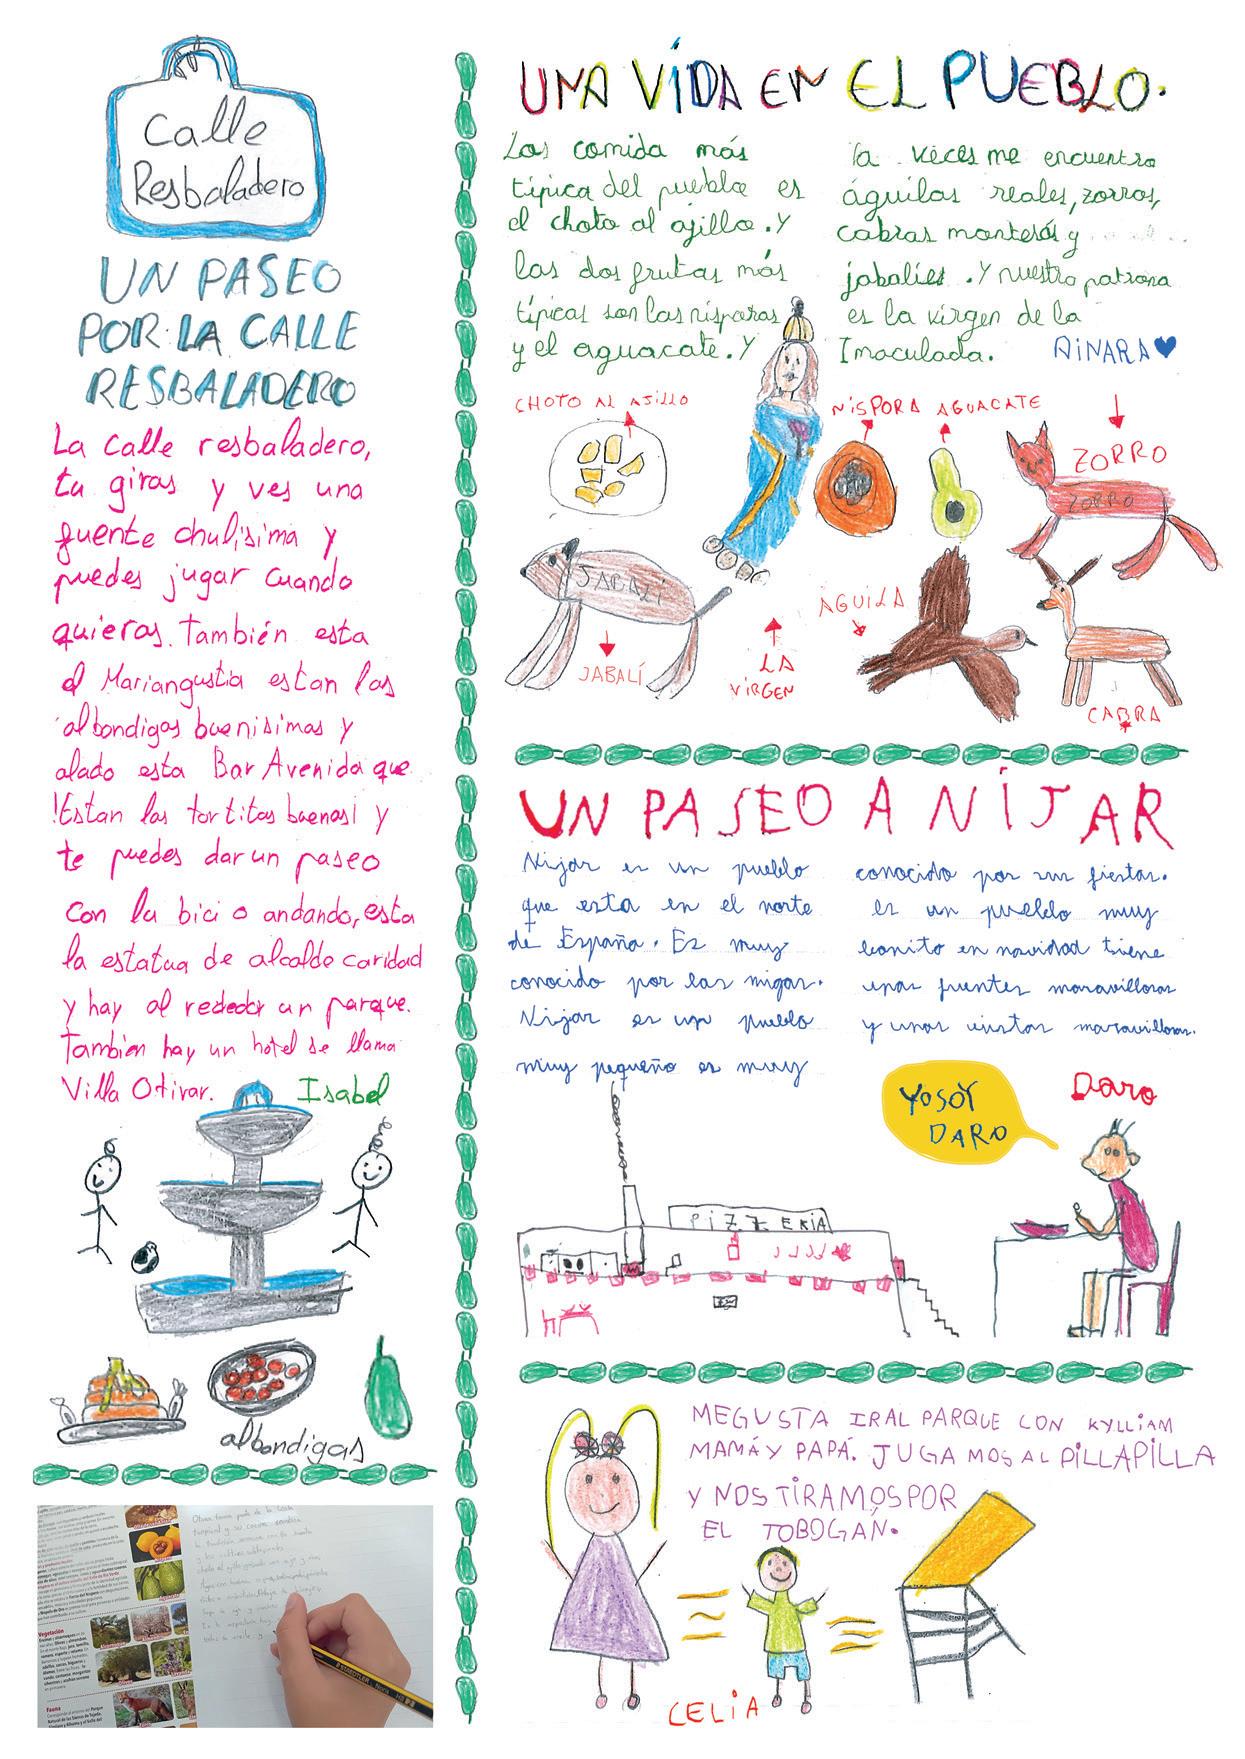 Calle
Resbaladero
UN PASEO
POR LA CALLE
RESBALADERO
La calle resbaladero,
tu giras y ves una
fuente chulisima y
puedes jugar cuando
quieras. También esta
el Mariangustia estan las
albondigas buenisimas y
alado esta Bar Avenida que
!Estan las tortitas buenas! y
te puedes dar un paseo
con la bici o andando, esta
la estatua de alcalde caridad
y hay al rededor un parque.
Tambien hay un hotel se llama
Villa Otivar. Isabel
albondigas
UNA VÍDA EN EL PUEBLO.
Las comida más
típica del pueblo es
el choto al ajillo. Y
las dos frutas más
típicas son las nísporas
y el aguacate. Y
a veces me encuentro
águilas reales, zorros,
cabras montesás y
jabalíes. Y nuestra patrona
es la virgen de la
Imaculada. AINARA
CHOTO AL AJILLO
NÍSPORA AGUACATE
ZORRO
ZORRO
JABALÍ
JABALÍ
LA
VIRGEN
ÁGUILA
CABRA
UN PASEO A NÍJAR
Nijar es un pueblo
que esta en el norte
de España. Es muy
conocido por las migas.
Nijar es un pueblo
muy pequeño es muy
conocido por sus fiestas.
es un pueblo muy
bonito en navidad tiene
unas fuentes maravillosas
y unas vistas maravillosas.
YO SOY
DARO
Daro
PIZZERIA
ME GUSTA IR AL PARQUE CON KYLLIAM
MAMÁ Y PAPÁ. JUGAMOS AL PILLAPILLA
Y NOS TIRAMOS POR
EL TOBOGÁN.
CELIA
Vegetación
Fauna
STAEDTLER Noris HB